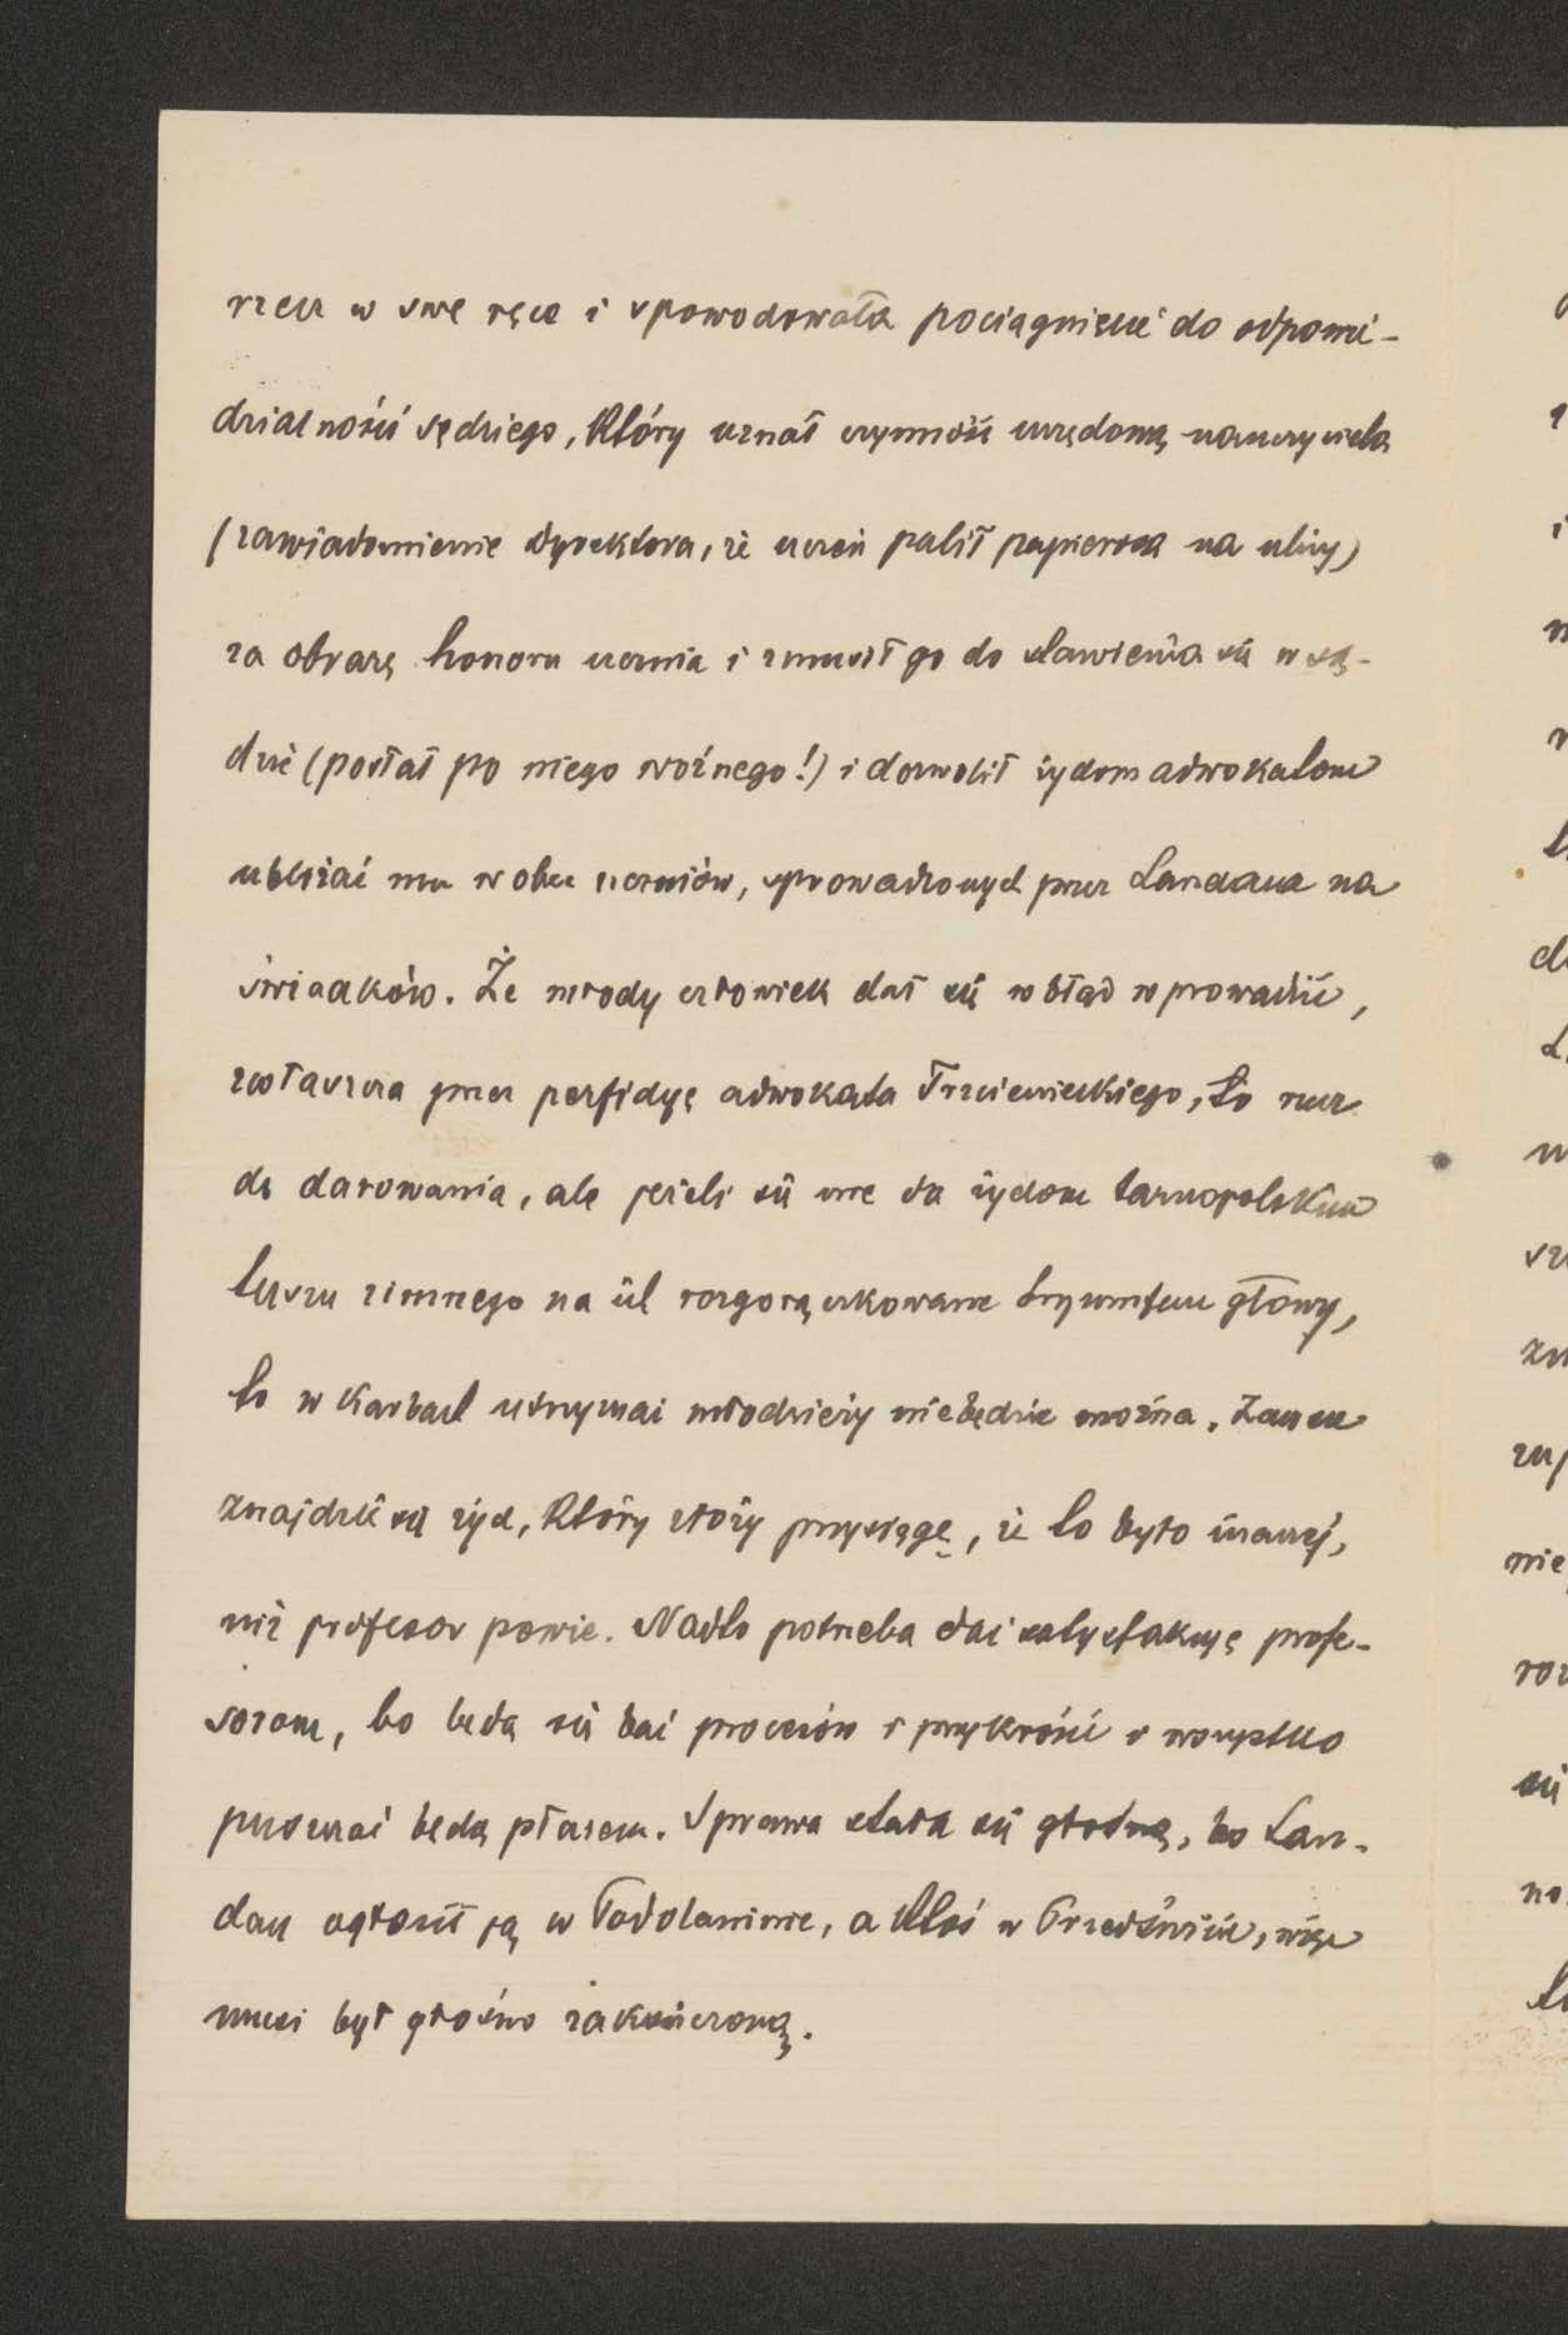 rzecz w swe ręce i spowodowała pociągnięcie do odpowie-
dzialności sędziego, który uznał czynność urzędową nauczyciela
(zawiadomienie dyrektora, że uczeń palił papierosa na ulicy)
za obrazę honoru ucznia i zmusił go do stawienia się w są-
dzie (posłał po niego woźnego!) i dozwolił żydom adwokatom
ubliżać mu wobec uczniów, sprowadzonych przez Landaua na
świadków. Że młody człowiek dał się w błąd wprowadzić,
zwłaszcza przez perfidyę adwokata Trzcienieckiego, to rzecz
do darowania, ale jeżeli się nie da żydom tarnopolskim
tuszu zimnego na ich rozgorączkowane tryumfem głowy,
to w karbach utrzymać młodzieży nie będzie można. Zawsze
znajdzie się żyd, który złoży przysięgę, że to było inaczej,
niż profesor powie. Nadto potrzeba dać satysfakcyę profe-
sorom, bo będą się bać procesów i przykrości i wszystko
puszczać będą płazem. Sprawa stała się głośną, bo Lan-
dau ogłosił ją w Podolaninie, a ktoś w Przedświcie, więc
musi być głośno zakończoną.